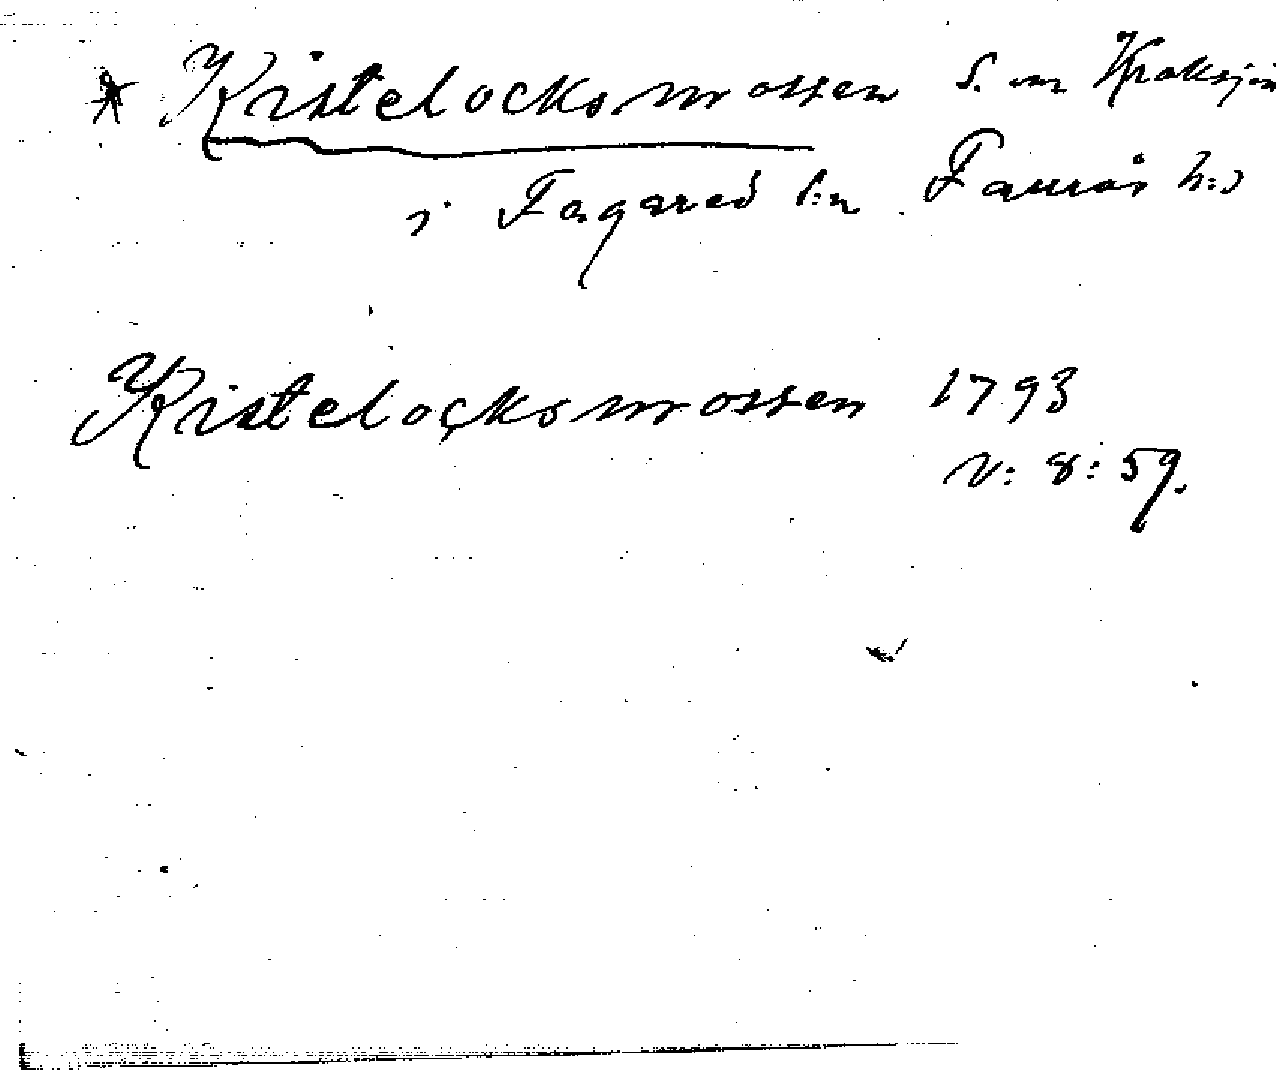 * Kistelocksmossen S. om Kroksjön
i Fagared s:n Faurås h:d
Kistelocksmossen 1793
V: 8: 59.